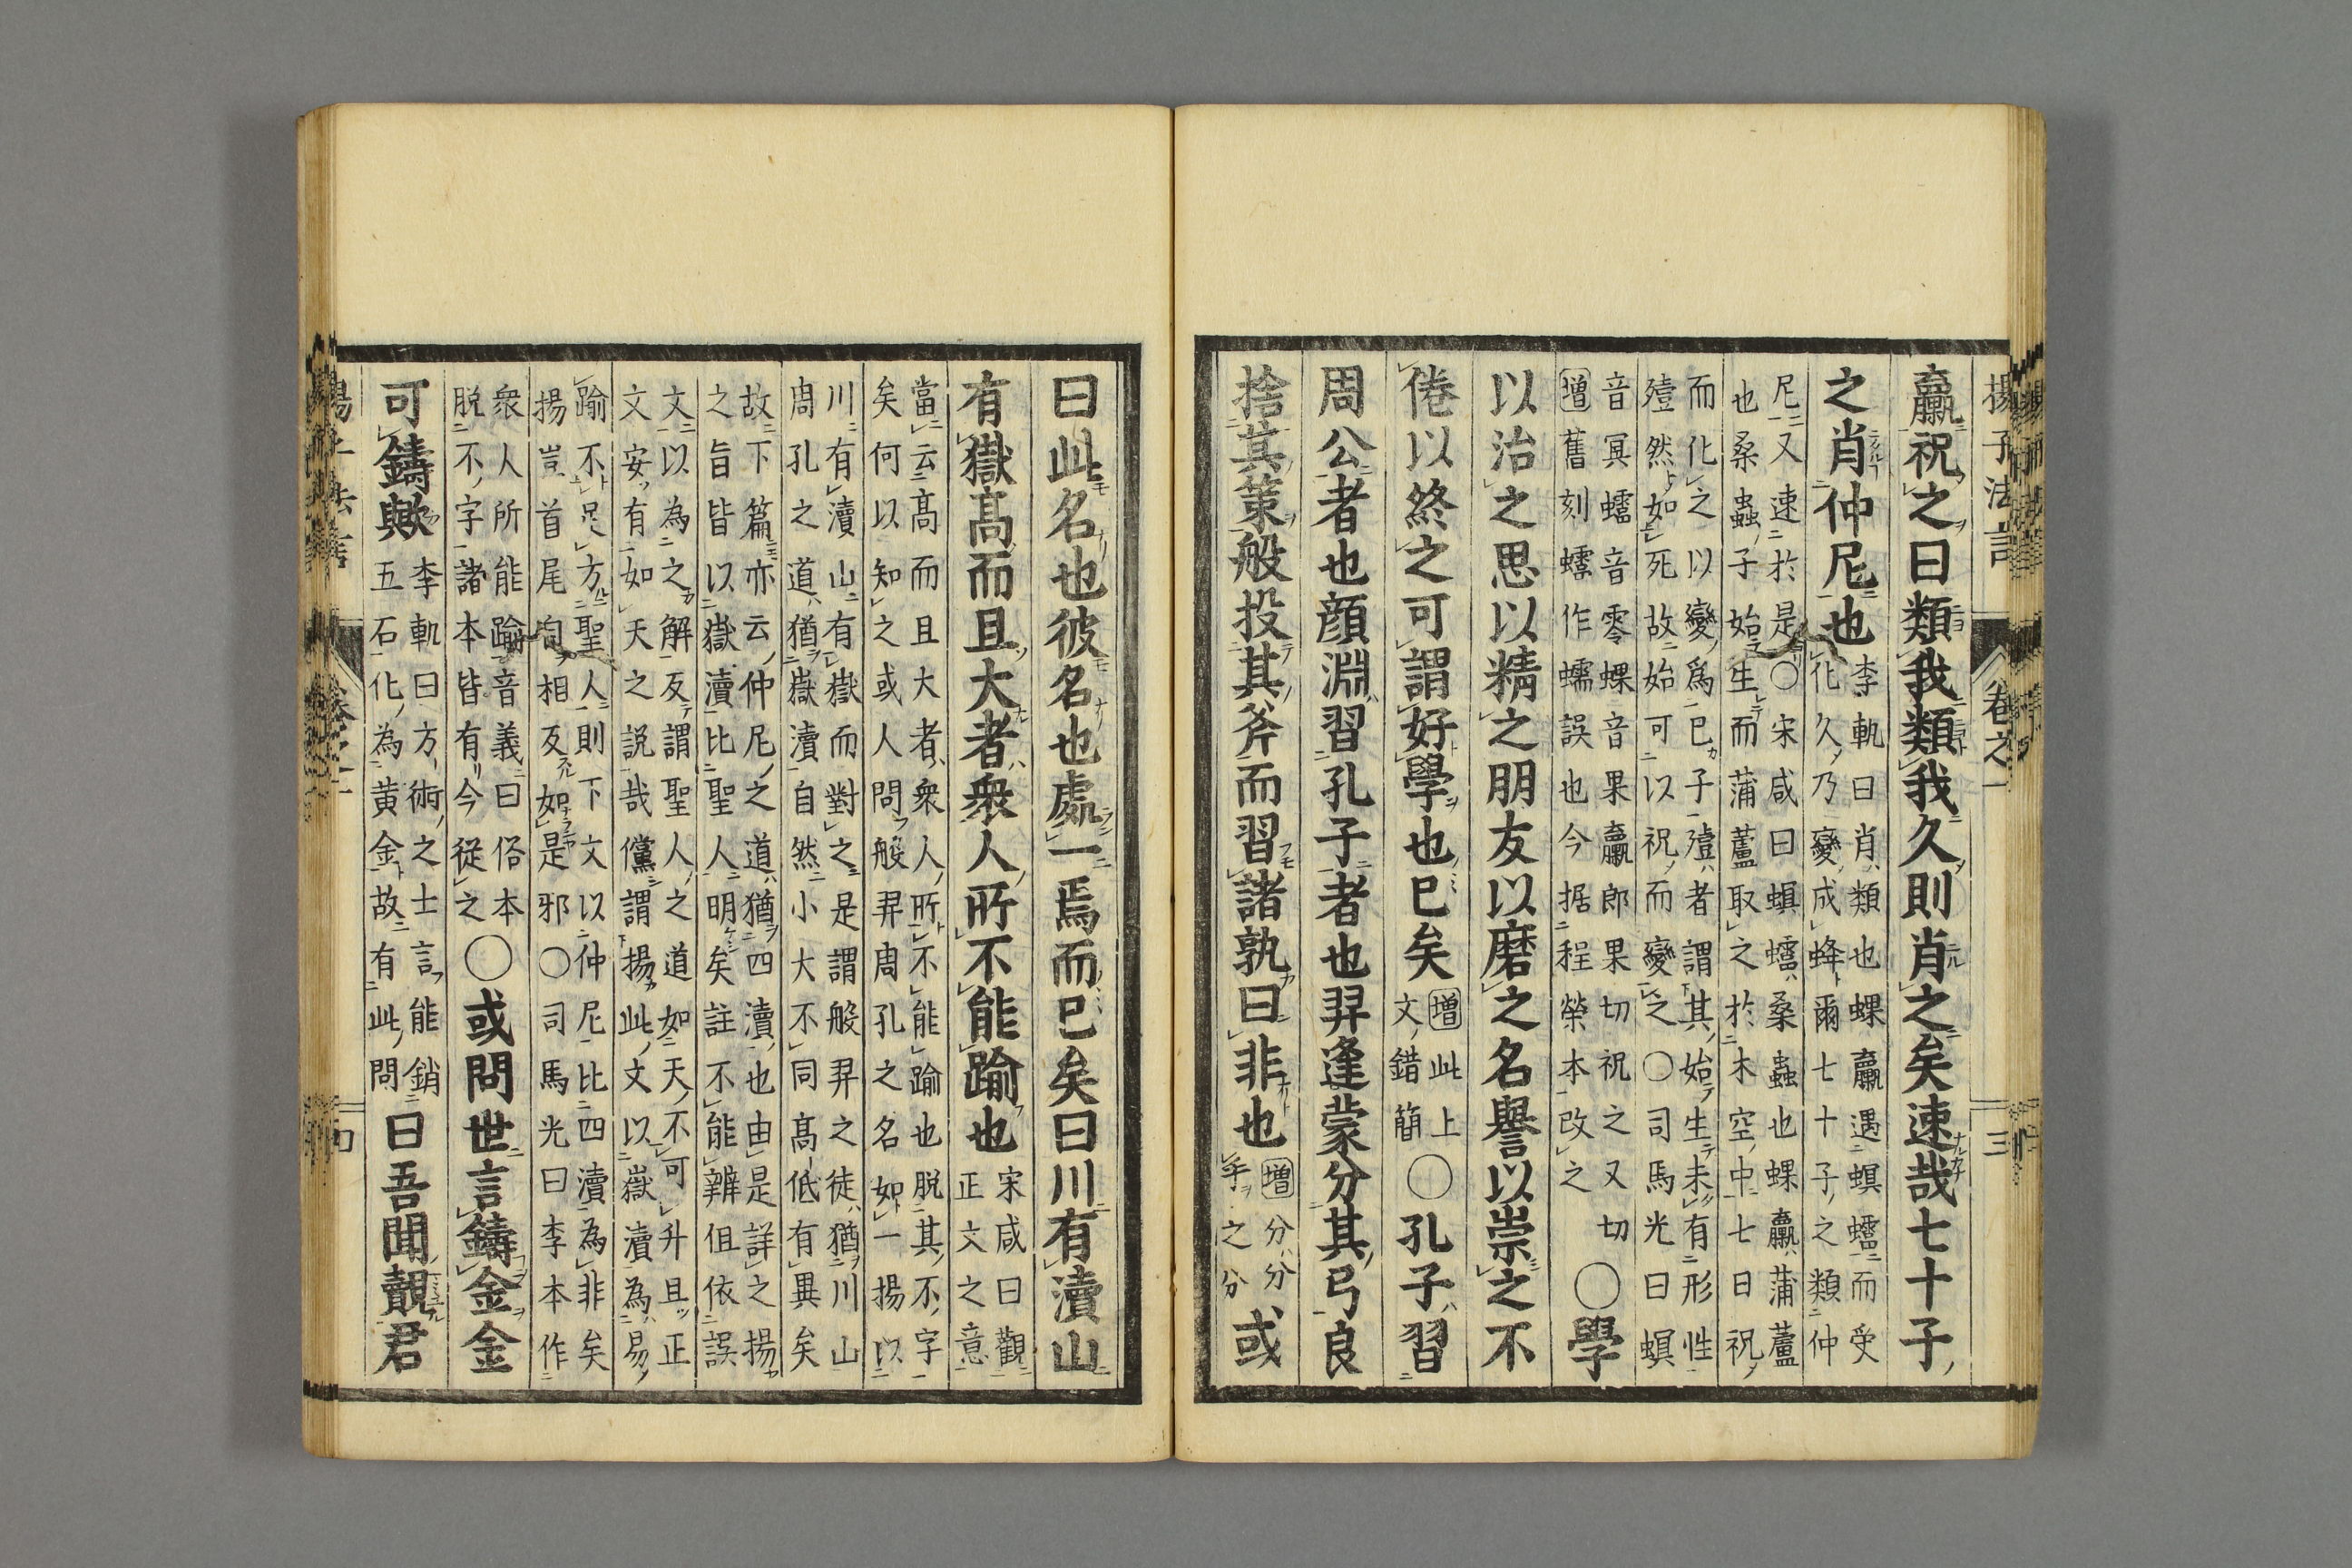 揚子法言 卷之一 三
蠃祝之曰類我類我久則肖之矣速哉七十子
之肖仲尼也
李軌曰肖類也蜾蠃遇螟而受
化久乃變成蜂爾七十子之類仲
尼又速於是○宋咸曰螟桑蟲也蜾蠃蒲蘆
也桑蟲子始生而蒲蘆取之於木空中七日祝
而化之以變爲已子殪者謂其始生未有形性
殪然如死故始可以祝而變之○司馬光曰螟
音冥音零蜾音果蠃郎果切祝之又切
增舊刻作蠕誤也今据程榮本改之
○學
以治之思以精之朋友以磨之名譽以崇之不
倦以終之可謂好學也已矣
增此上
文錯簡
○孔子習
周公者也顏淵習孔子者也羿逢蒙分其弓良
捨其策般投其斧而習諸孰曰非也
增分分
手之分
或
曰此名也彼名也處一焉而已矣曰川有瀆山
有嶽高而且大者衆人所不能踰也
宋咸曰觀
正文之意
當云高而且大者衆人所不能踰也脱其不字
矣何以知之或人問般羿周孔之名如一揚以
川有瀆山有嶽而對之是謂般羿之徒猶川山
周孔之道猶嶽瀆自然小大不同高低有異矣
故下篇亦云仲尼之道猶四瀆也由是詳之揚
之旨皆以嶽瀆比聖人明矣註不能辨但依誤
文以為之解反謂聖人之道如天不可升且正
文安有如天之説哉儻謂揚此文以嶽瀆為易
踰不足方聖人則下文以仲尼比四瀆為非矣
揚豈首尾自相反如是邪○司馬光曰李本作
衆人所能踰音義曰俗本
脱不字諸本皆有今從之
○或問世言鑄金金
可鑄歟
李軌曰方術之士言能銷
五石化為黄金故有此問
曰吾聞覿君
揚子法言 卷之一 四